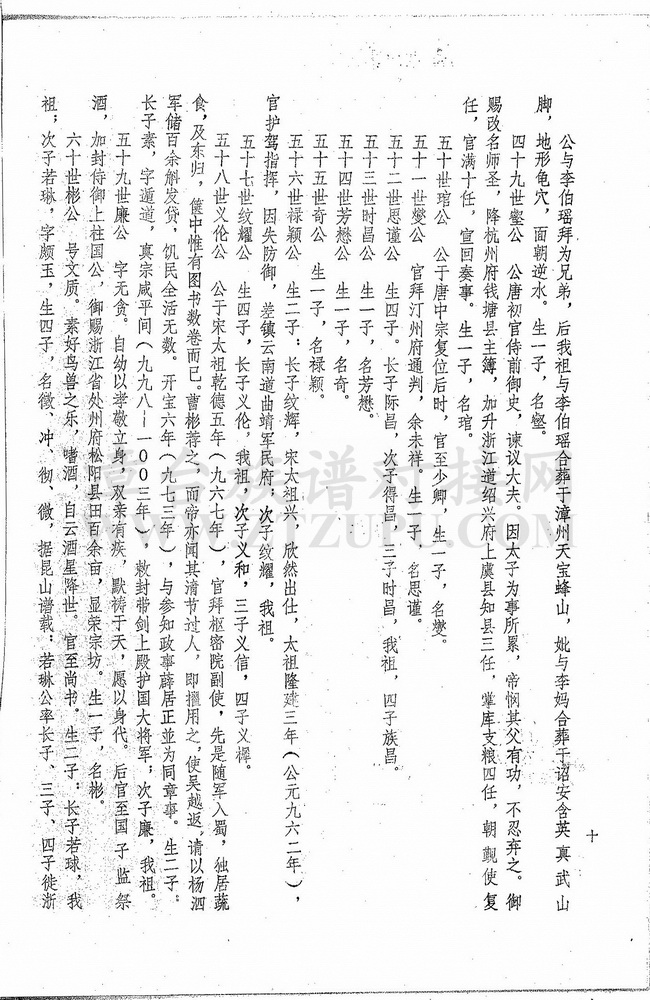 公与李伯瑶拜为兄弟，后我祖与李伯瑶合葬于漳州天宝蜂山，妣与李妈合葬于诏安含英真武山
脚，地形龟穴，面朝逆水。生一子，名壑。
四十九世壑公　公唐初官侍前御史，谏议大夫。因太子为事所累，帝悯其父有功，不忍弃之。御
赐改名师圣，降杭州府钱塘县主簿，加升浙江道绍兴府上虞县知县三任，掌库支粮四任，朝觐使复
任，官满十任，宣回奏事。生一子，名琯。
五十世琯公　公于唐中宗复位后时，官至少卿，生一子，名燮。
五十一世燮公　官拜汀州府通判，余未祥。生一子，名思谨。
五十二世思谨公　生四子。长子际昌，次子得昌，三子时昌，我祖，四子族昌。
五十三世时昌公　生一子，名芳懋。
五十四世芳懋公　生一子，名奇。
五十五世奇公　生一子，名禄颖。
五十六世禄颖公　生二子：长子纹辉，宋太祖兴，欣然出仕，太祖隆建三年（公元九六二年），
官护驾指挥，因失防御，差镇云南道曲靖军民府；次子纹耀，我祖。
五十七世纹耀公　生四子，长子义伦，我祖，次子义和，三子义信，四子义樨。
五十八世义伦公　公于宋太祖乾德五年（九六七年），官拜枢密院副使，先是随军入蜀，独居蔬
食，及东归，箧中惟有图书数卷而已。曹彬荐之，而帝亦闻其清节过人，即擢用之，使吴越返，请以杨泗
军储百余斛发贷，饥民全活无数。开宝六年（九七三年），与参知政事薛居正並为同章事。生二子。
长子素，字遁道，真宗咸平间（九九八—一００三年），敕封带剑上殿护国大将军；次子廉，我祖。
五十九世廉公　字无贪。自幼以孝敬立身，双亲有疾，歃祷于天，愿以身代。后官至国子监祭
酒，加封侍御上柱国公，御赐浙江省处州府松阳县田百余亩，显荣宗坊。生一子，名彬。
六十世彬公　号文质。素好鸟兽之乐，嗜酒，自云酒星降世。官至尚书。生二子：长子若球，我
祖；次子若琳，字颇玉，生四子，名徵、冲、彻、微，据昆山谱载：若琳公率长子、三子、四子徙浙
十